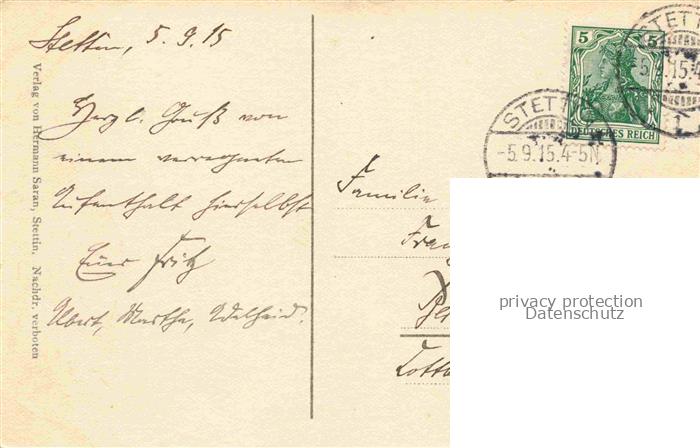 Stettin, 5.9.15
Herzl. Gruß von
einem verregneten
Aufenthalt hierselbst
Euer Fritz
Albert, Martha, Adelheid.
Verlag von Hermann Saran, Stettin. Nachdr. verboten
5 5
DEUTSCHES REICH
STETTIN
-5.9.15.4-5N
STETT
-5.9.15.4
1
Familie
privacy protection
Datenschutz